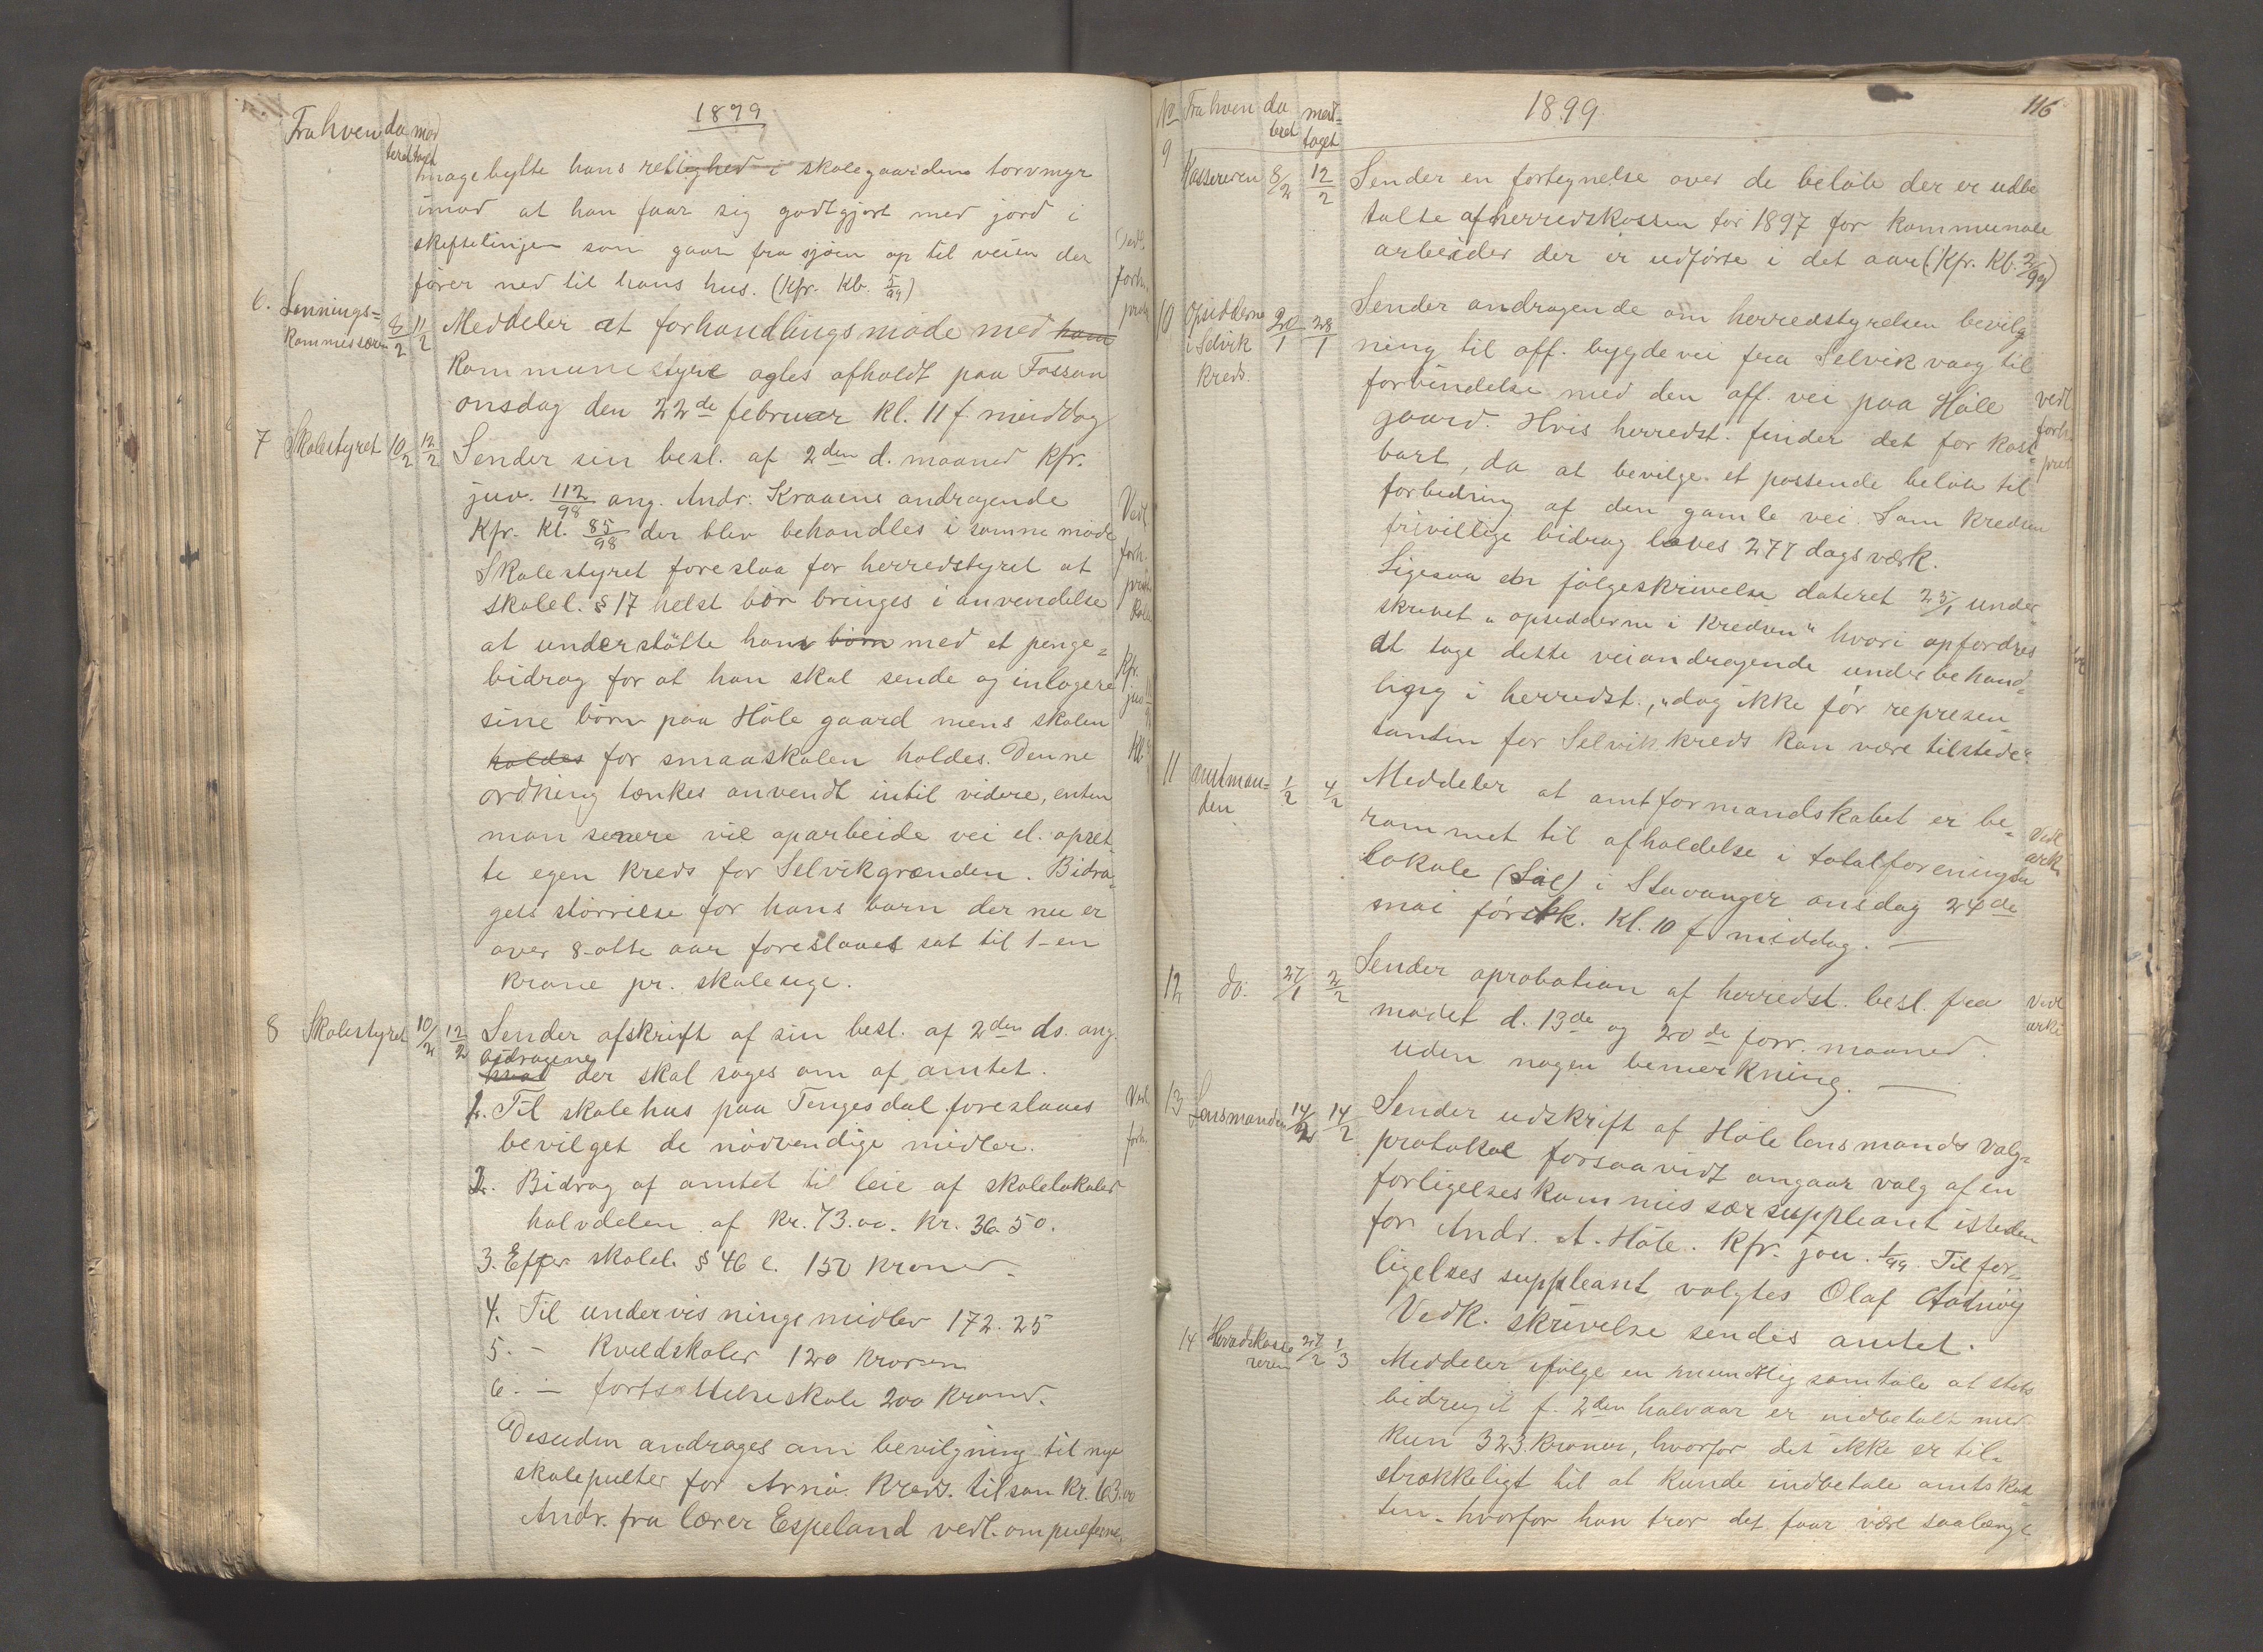 1899
Fra hvem da mod
teret taget
magebytte hans rettighed i skolegaardens torvmyr
imod at han faar sig godtgjort med jord i
skiftelinjen som gaar fra sjøen op til veien der
fører ned til hans hus. (Kfr. Kb. 5/99)
Vedl.
forh.
prot.
6. Lennings=
kommissæren 8/2 11/2 Meddeler at forhandlingsmøde med ham
Kommunestyre agtes afholdt paa Fossan
onsdag den 22de februar kl. 11 f. middag
7 Skolestyret 10/2 12/2 Sender sin besl. af 2den d. maaned kfr.
juo. 112/98 ang. Andr. Kraaens andragende
Kfr. Kl. 85/98 der blev behandles i samme møde
Skolestyret foreslaa for herredstyret at
skolel. § 17 helst bør bringes i anvendelse
at understøtte hans børn med et penge=
bidrag for at han skal sende og inlogere
sine børn paa Høle gaard mens skolen
holdes for smaaskolen holdes. Denne
ordning tænkes anvendt intil videre, enten
man senere vil oparbeide vei el. opret-
te egen kreds for Selvikgrænden. Bidra-
gets størrelse for hans barn der nu er
over 8-otte aar foreslaaes sat til 1-en
krone pr. skoleuge.
Vedl
forh.
Kfr.
8 Skolestyret 10/2 12/2 Sender afskrift af sin besl. af 2den ds. ang.
bidragene
hvad der skal søges om af amtet.
1. Til skolehus paa Tengesdal foreslaaes
bevilget de nødvendige midler.
2. Bidrag af amtet til leie af skolelokaler
halvdelen af kr. 73.00. kr. 36.50.
3. Efter skolel. § 46 c. 150 kroner.
4. Til undervisningsmidler 172.25
5. - Kveldskoler 120 kroner
6. - fortsættelseskole 200 kroner.
Desuden andrages om bevilgning til nye
skolepulter for Arnø. kreds. tilsam kr. 63.00
Andr. fra lærer Espeland vedl. om pulterne.
Vedl.
forh.
No Fra hvem da
teret mod-
taget
1899
116
9 Kassereren 8/2 12/2 Sender en fortegnelse over de beløb der er udbe
talte af herredskassen for 1897 for kommunale
arbeider der er udførte i det aar (Kfr. Kb. 2/99)
10 Opsidderne
i Selvik
Kreds. 20/1 28/1 Sender andragende om herredstyrelsen bevilg
ning til off. bygdevei fra Selvikvaag til
forbindelse med den off. vei paa Høle
gaard. Hvis herredst. finder det for kost-
bart, da at bevilge et passende beløb til
forbedring af den gamle vei. Som kredsen
frivillige bidrag loves 277 dagsværk.
Ligesaa en følgeskrivelse dateret 25/1 under
skrevet „opsidderne i kredsen" hvori opfordres
at tage dette veiandragende under behand-
ling i herredst., „dog ikke før represen-
tanten for Selvik kreds kan være tilstede".
vedl
forh.
prot
11 amtman=
den 1/2 4/2 Meddeler at amtformandskabet er be-
rammet til afholdelse i totalforeningens
lokale (Sal) i Stavanger onsdag 24de
mai førstk. kl. 10 f. middag. —
Vedl
ark.
12 do. 27/1 2/2 Sender aprobation af herredst. besl. fra
mødet d. 13de og 20de forr. maaned.
uden nogen bemerkning. —
Vedl
arki
13 Lensmanden 14/2 14/2 Sender udskrift af Høle lensmands valg=
protokol forsaavidt angaar valg af en
forligelseskommissærsuppleant isteden
for Andr. A. Høle. Kfr. jou. 1/99. Til for-
ligelses suppleant valgtes Olaf Aadnøy
Vedk. skrivelse sendes amtet.
14 Herredskasse
reren 27/2 1/3 Meddeler ifølge en mundtlig samtale at stats
bidraget f. 2den halvaar er indbetalt med
kun 323 kroner, hvorfor det ikke er til-
strækkeligt til at kunde indbetale amtskat-
ten. hvorfor han tror det faar være saalænge